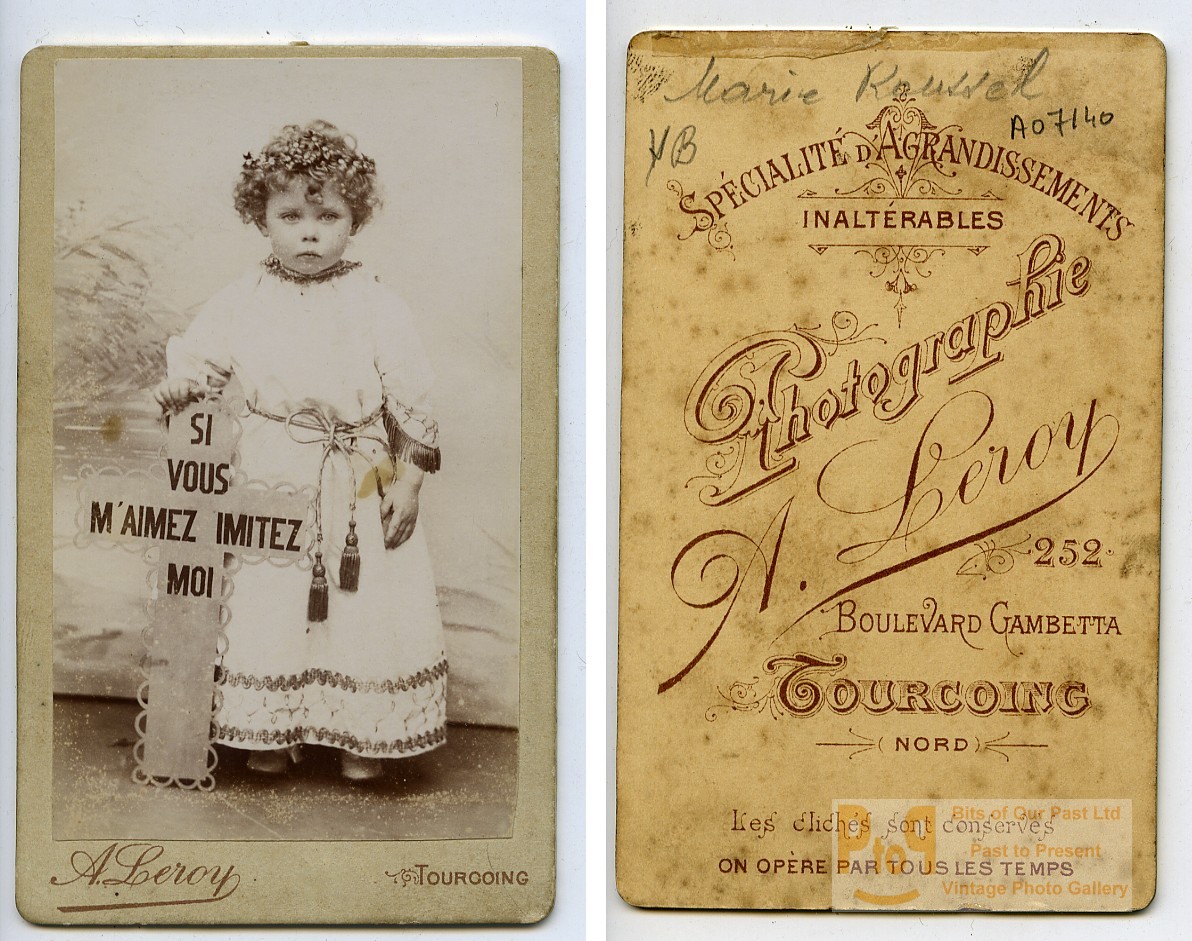 SI
VOUS
M'AIMEZ IMITEZ
MOI
A. Leroy
TOURCOING
Marie Roussel
A07140
VB
SPÉCIALITÉ D'AGRANDISSEMENTS
INALTÉRABLES
Photographie
A. Leroy
252
BOULEVARD GAMBETTA
TOURCOING
NORD
Les clichés sont conservés
ON OPÈRE PAR TOUS LES TEMPS
PtoP
Bits of Our Past Ltd
Past to Present
Vintage Photo Gallery